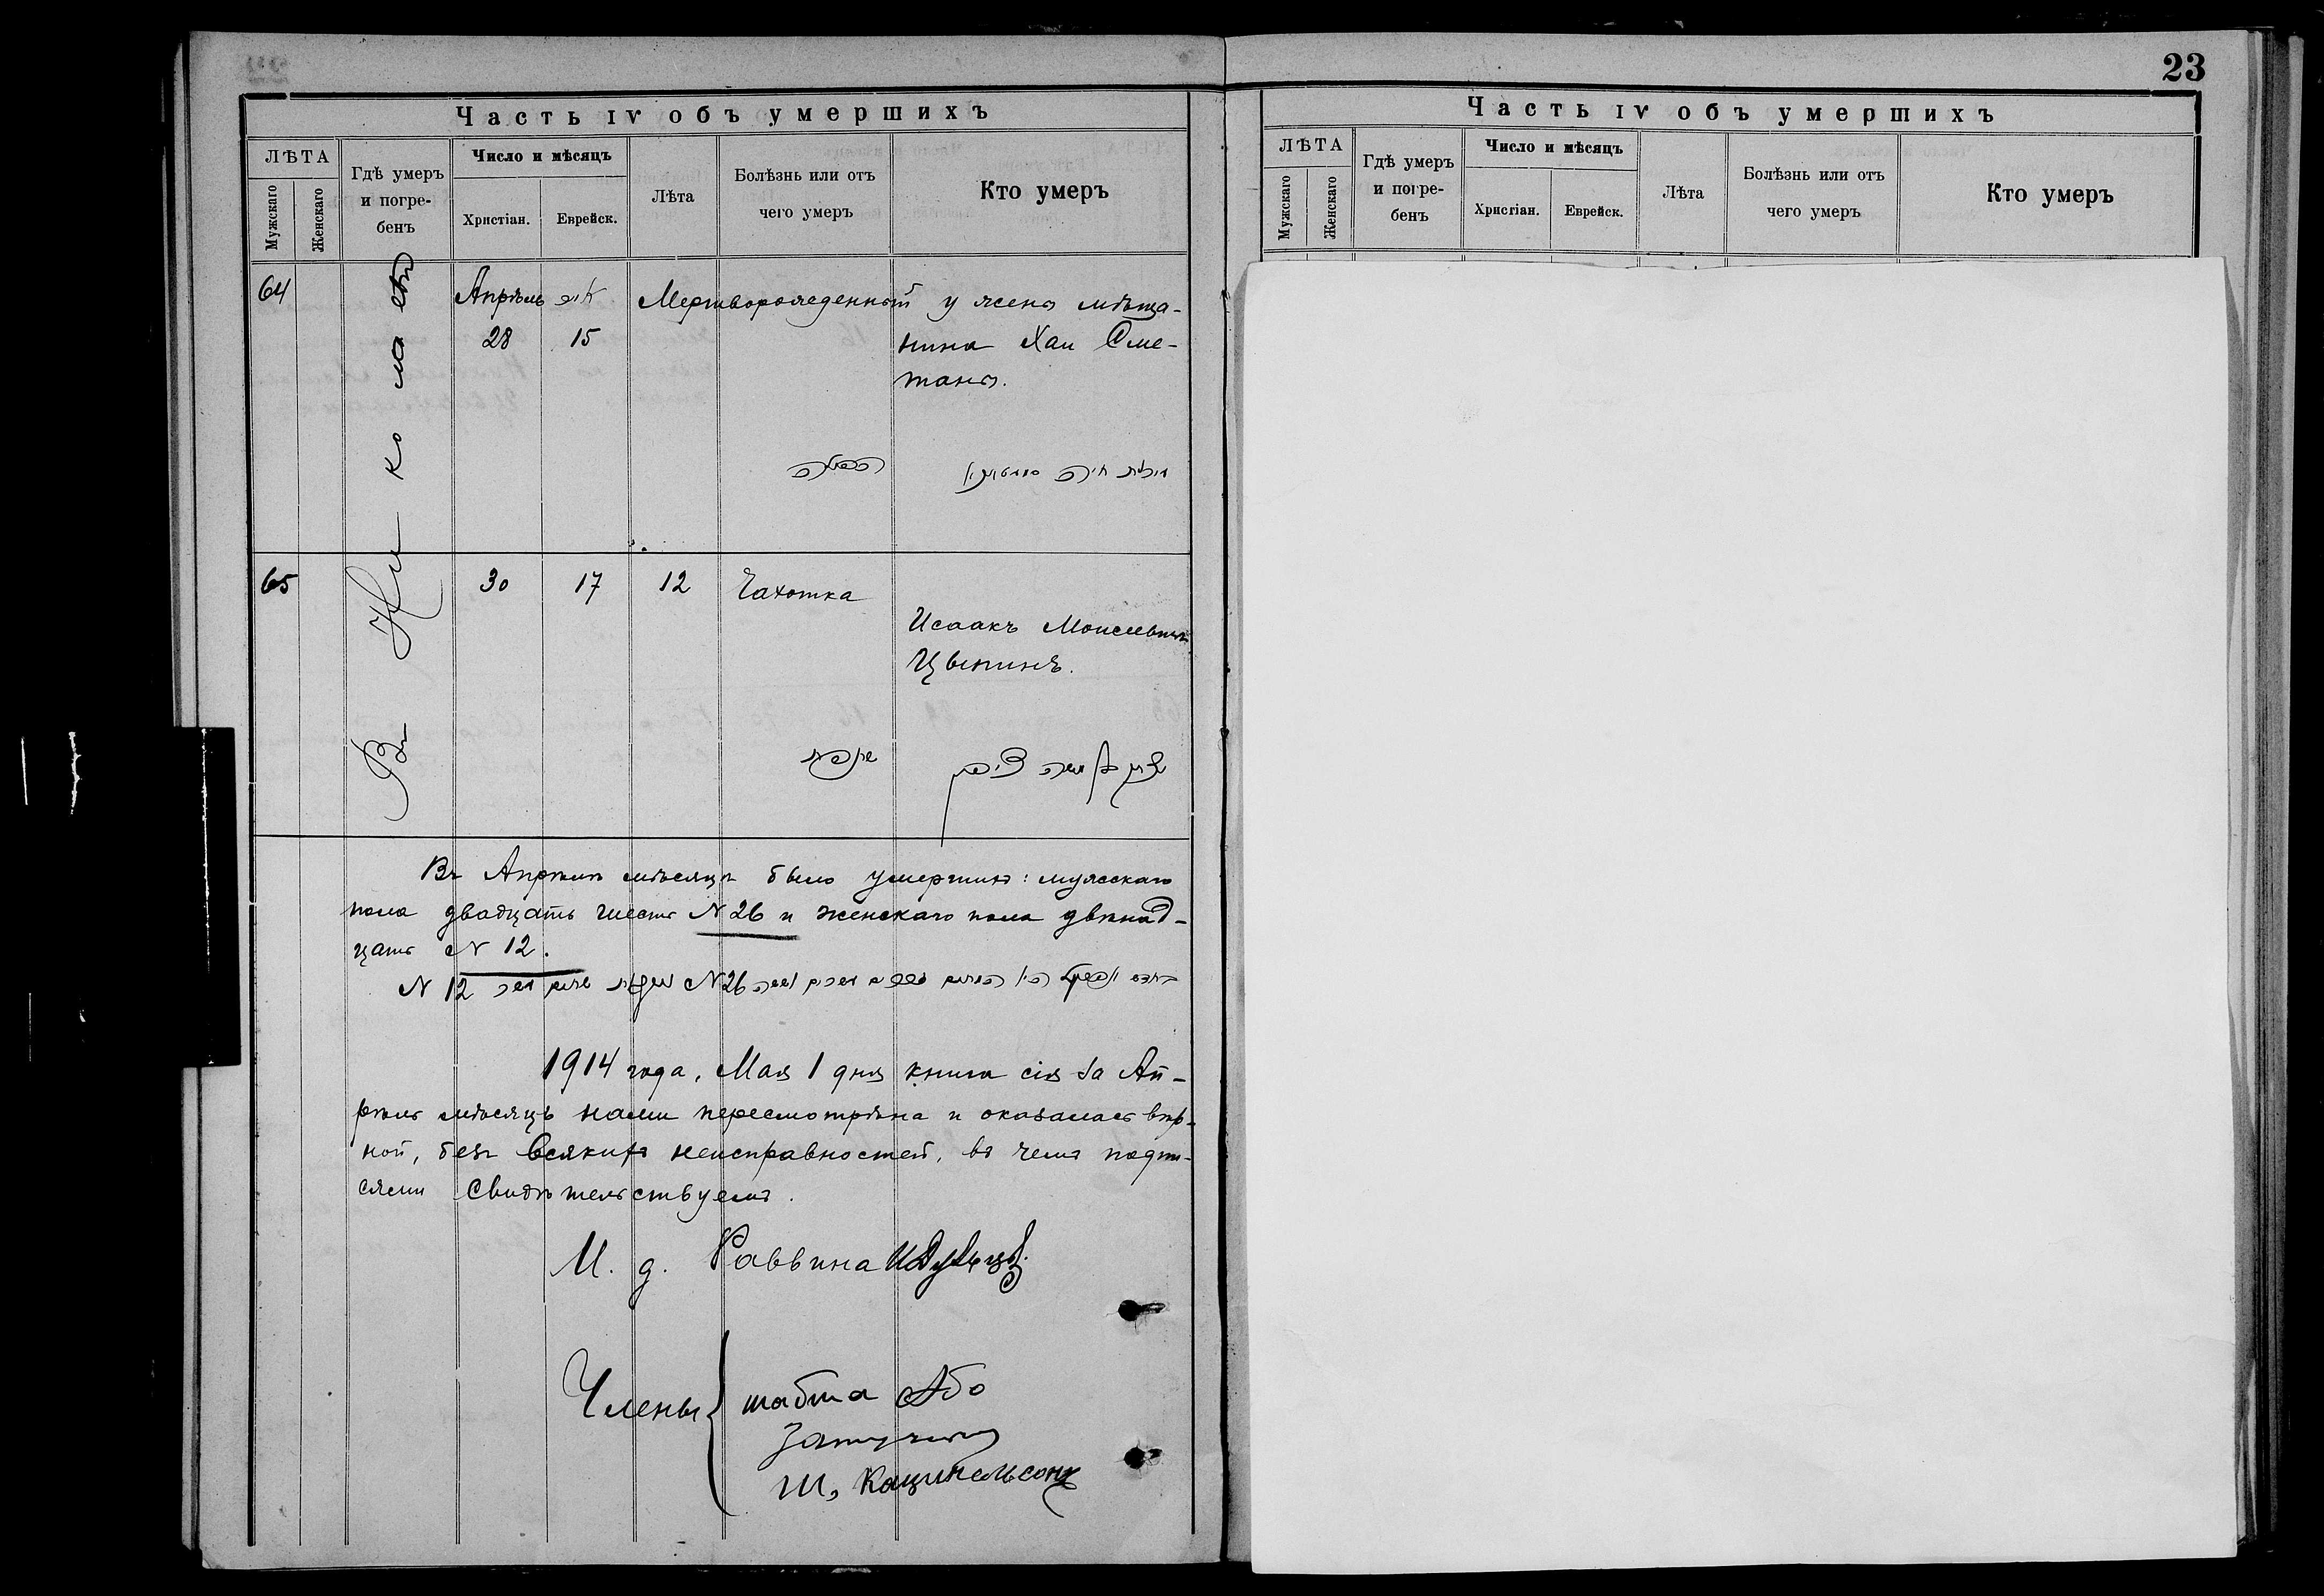 Часть IV объ умершихъ
ЛѢТА
Мужскаго
Женскаго
Гдѣ умеръ и погребенъ
Число и мѣсяцъ
Христіан.
Еврейск.
Лѣта
Болѣзнь или отъ чего умеръ
Кто умеръ
Въ Николаевѣ
64
Апрѣль
28
15
Мертворожденный у жены мѣща-
нина Хаи Сме-
таны.
65
30
17
12
Чахотка
Исаакъ Моисеевичъ
Цыпинъ.
Въ Апрѣлѣ мѣсяцѣ было умершихъ: мужскаго
пола двадцать шесть N 26 и женскаго пола двѣнад-
цать N 12.
N 12
N 26
1914 года, Мая 1 дня книга сія за Ап-
рѣль мѣсяцъ нами пересмотрѣна и оказалась вѣр-
ной, безъ всякихъ неисправностей, въ чемъ подпи-
сями свидѣтельствуемъ.
И. д. Раввина
Члены
шабта Або
Ш. Кацнельсонъ
23
Часть IV объ умершихъ
ЛѢТА
Мужскаго
Женскаго
Гдѣ умеръ и погребенъ
Число и мѣсяцъ
Христіан.
Еврейск.
Лѣта
Болѣзнь или отъ чего умеръ
Кто умеръ